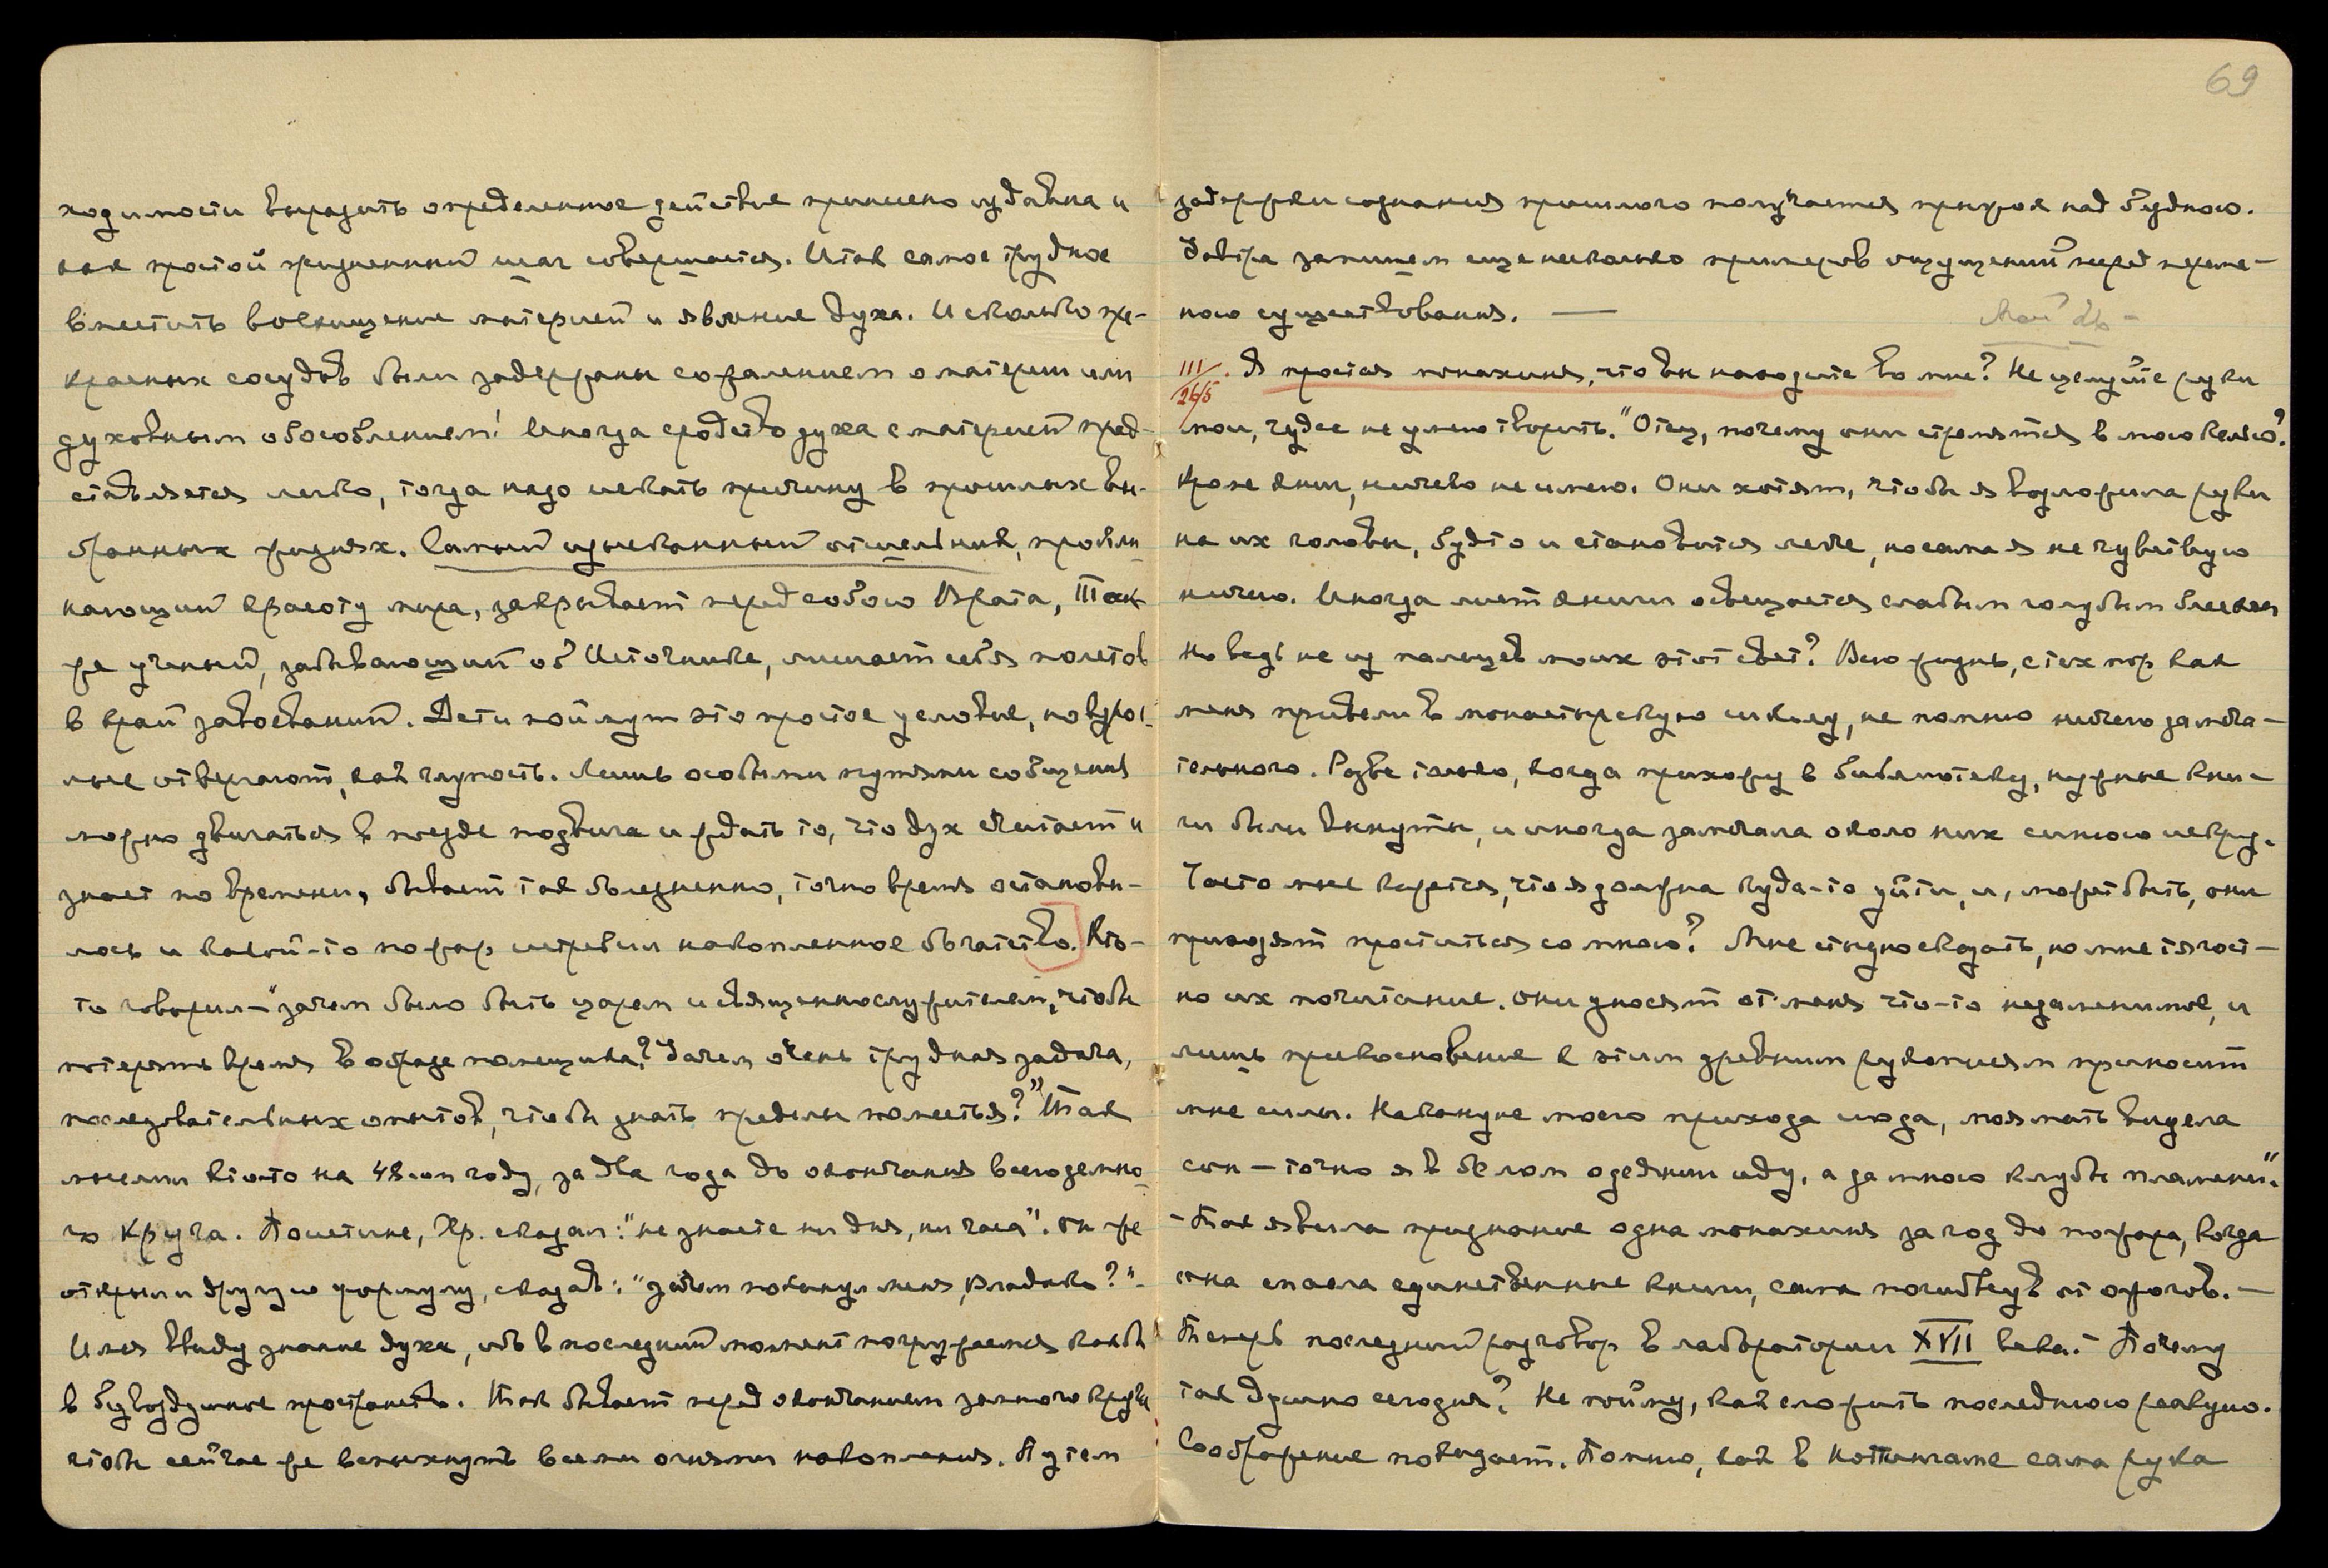 ходимости выразить определенное действие принесено издавна и
как простой жизненный шаг совершается. Итак самое трудное
вместить восхищение материей и явление духа. И сколько пре-
красных сосудов были задержаны сожалением о материи или
духовным обособлением! Иногда сродство духа с материей пред-
ставляется легко, тогда надо искать причину в прошлых вы-
бранных жизнях. Самый изысканный отшельник, прокли-
нающий красоту мира, закрывает перед собою Врата, Так
же ученый, забывающий об Источнике, лишает себя полетов
в край завоеваний. Дети поймут это простое условие, но взрос-
лые отвергают, как глупость. Лишь особыми путями сообщения
можно двигаться в поезде подвига и ждать то, что дух считает и
знает по времени, бывает так болезненно, точно время останови-
лось и какой-то пожар истребил накопленное богатство. Кто-
то говорил — "зачем было быть царем и священнослужителем, чтобы
потерять время в образе помещика? Зачем очень трудная задача,
последовательных опытов, чтобы знать пределы поместья?" Так
мыслил кто-то на 48-ом году, за два года до окончания всеземно-
го Круга. Поистине, Хр. сказал: "не знаете ни дня, ни часа". Он же
открыл и другую формулу, сказав: "зачем покинул меня, Владыко?" -
Имея ввиду знание духа, ибо в последний момент погружаемся как бы
в безвоздушное пространство. Так бывает перед окончанием земного круга
чтобы сейчас же вспыхнуть всеми огнями накопления. Путем
69
задержки сознания прошлого получается прыжок над бездною.
Завтра запишем еще несколько примеров ощущений перед переме-
ною существования. —
III/26/5. Я простая монахиня, что вы находите во мне? Не целуйте руки
мои, чудес не умею творить. "Отец, почему они стремятся в мою келью?
Кроме книг, ничего не имею. Они хотят, чтобы я возложила руки
на их головы, будто и становится легче, но сама я не чувствую
ничего. Иногда лист книги освещается слабым голубым блеском
но ведь не из пальцев моих этот свет? Всю жизнь, с тех пор как
меня привели в монастырскую школу, не помню ничего замеча-
тельного. Разве только, когда прихожу в библиотеку, нужные кни-
ги были вынуты, и иногда замечала около них синюю искру.
Часто мне кажется, что я должна куда-то уйти, и, может быть, они
приходят проститься со мною? Мне стыдно сказать, но мне тягост-
но их почитание. Они уносят от меня что-то незаменимое, и
лишь прикосновение к этим древним рукописям приносит
мне силы. Накануне моего прихода сюда, моя мать видела
сон — точно я в белом одеянии иду, а за мною клубы пламени".
- Так явила признание одна монахиня за год до пожара, когда
она спасла единственные книги, сама погибнув от ожогов. —
Теперь последний разговор в лаборатории XVII века. - Почему
так душно сегодня? Не пойму, как сложить последнюю реакцию.
Соображение покидает. Помню, как в Ноттингаме сама рука